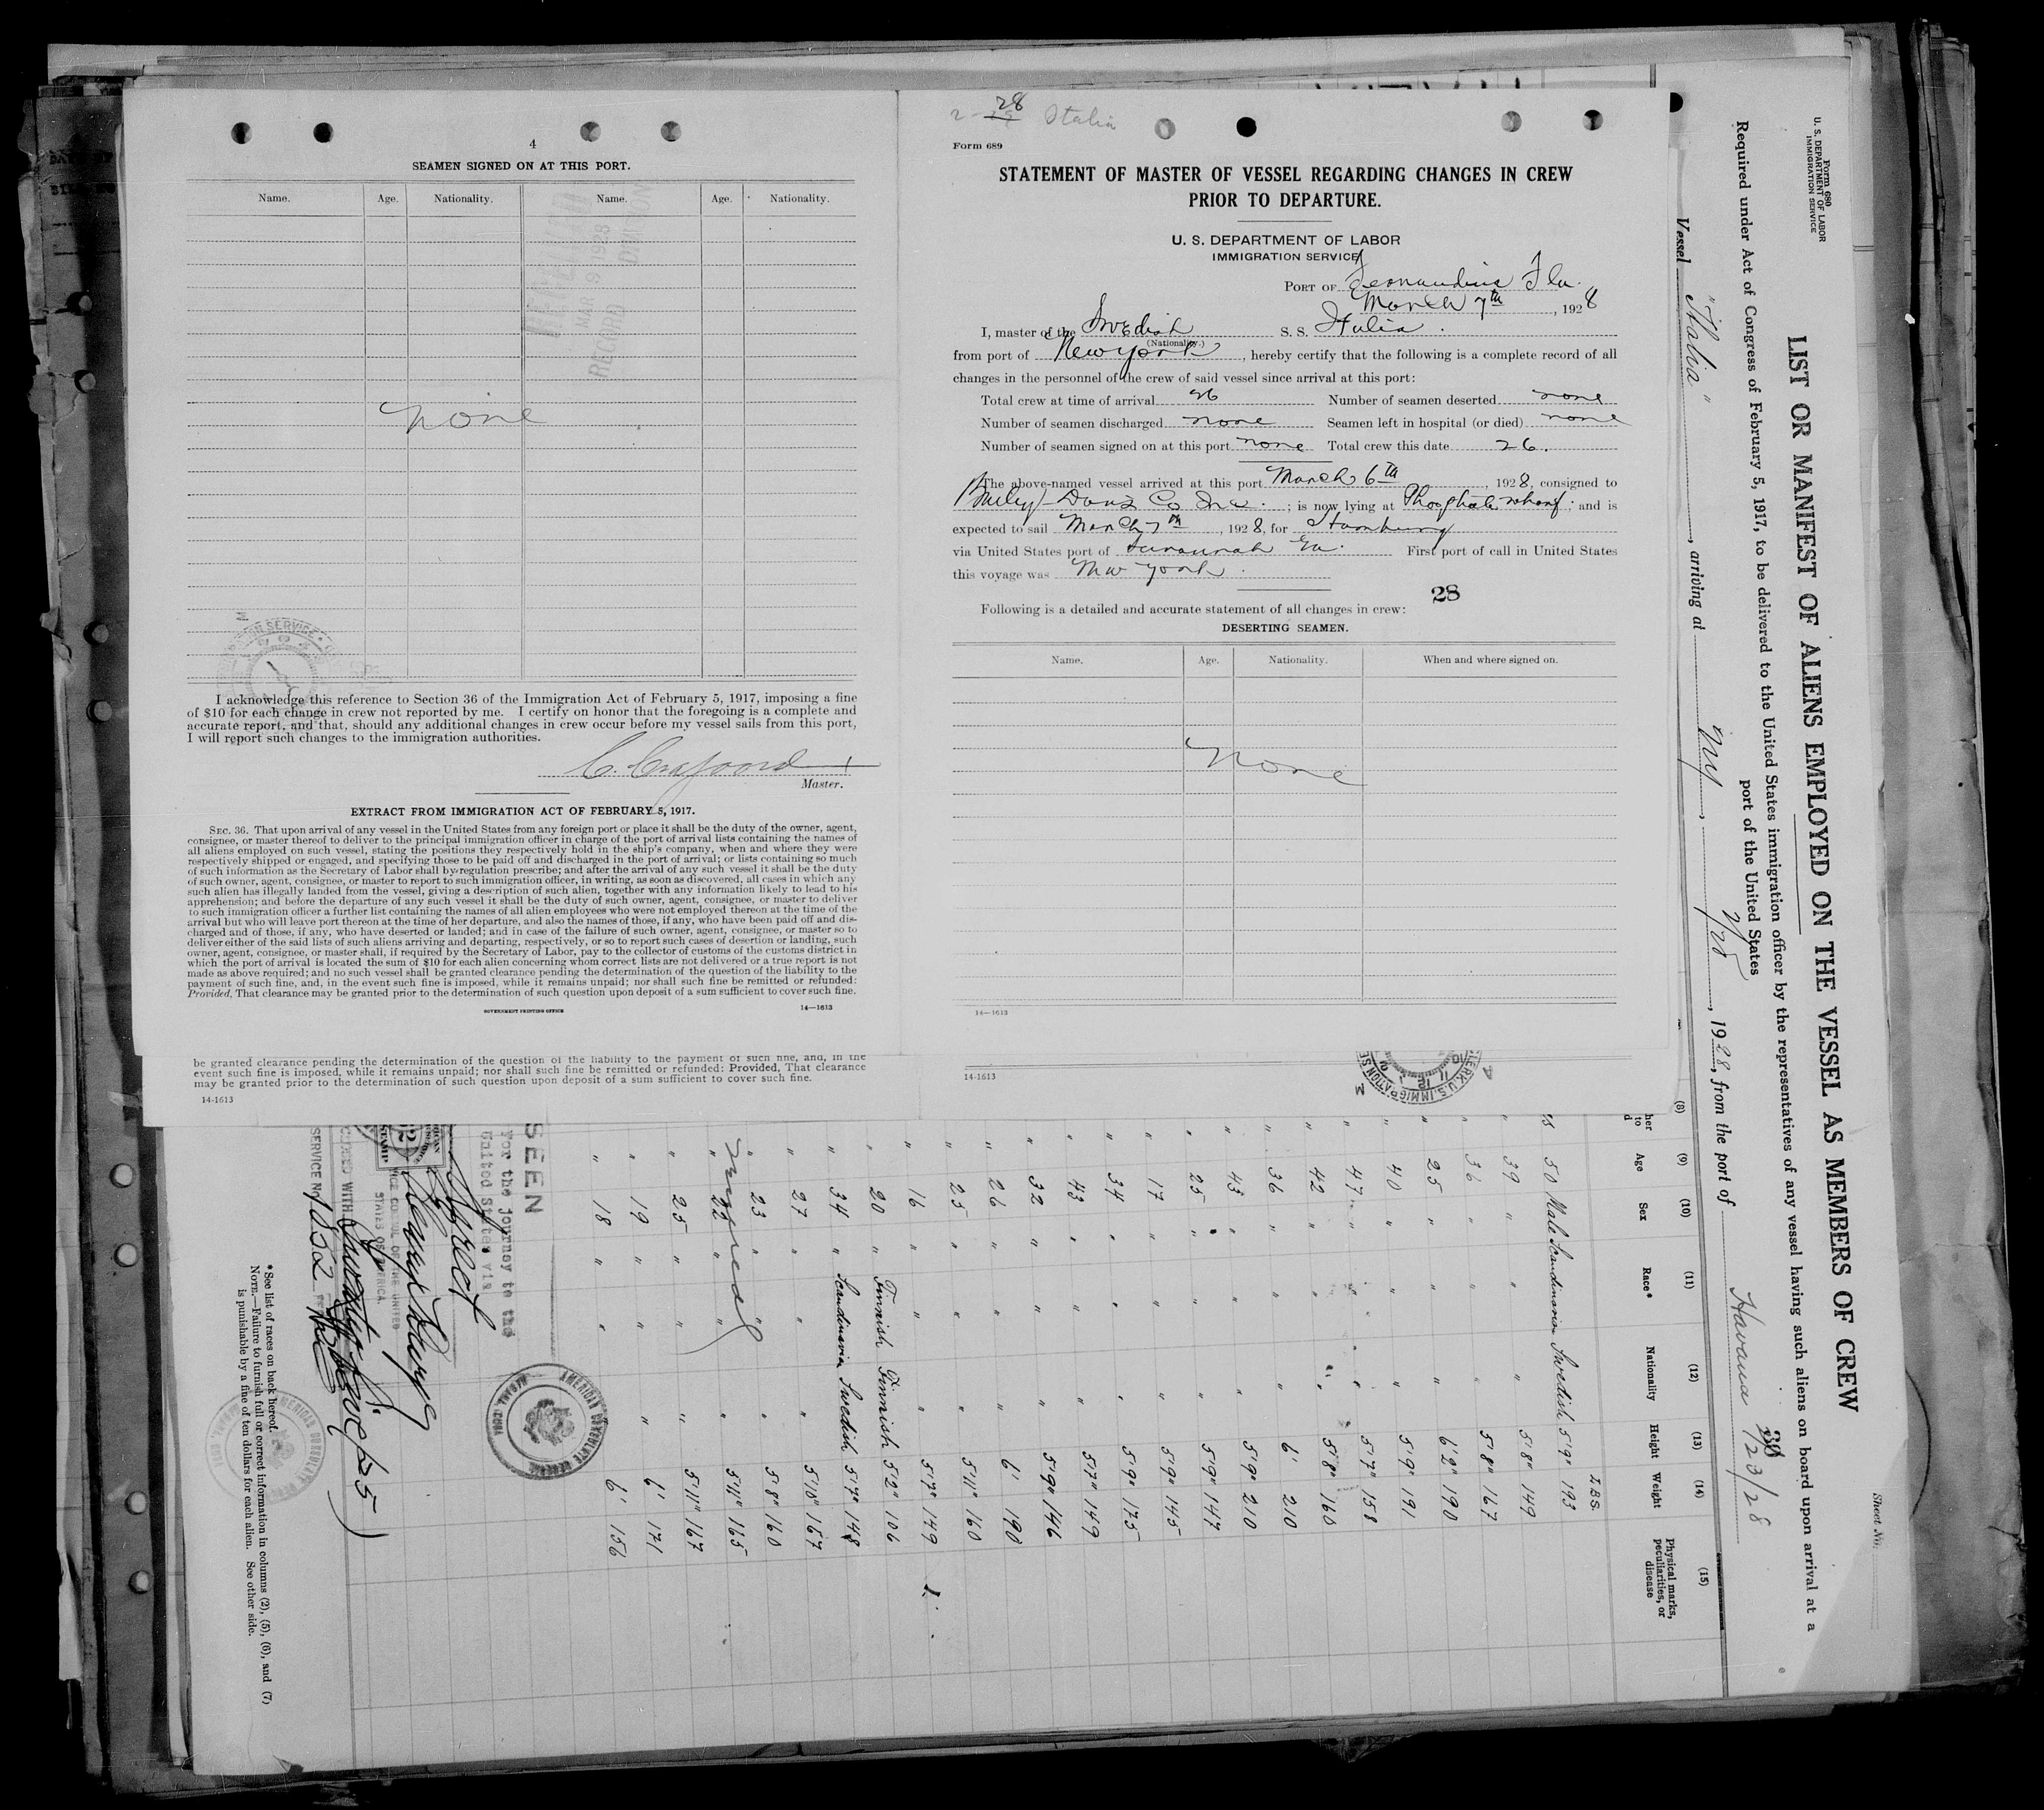 4
SEAMEN SIGNED ON AT THIS PORT.
Name. Age. Nationality. Name. Age. Nationality.
MAR 9 1928
RECORD DIVISION
none
I acknowledge this reference to Section 36 of the Immigration Act of February 5, 1917, imposing a fine
of $10 for each change in crew not reported by me. I certify on honor that the foregoing is a complete and
accurate report, and that, should any additional changes in crew occur before my vessel sails from this port,
I will report such changes to the immigration authorities.
Master.
EXTRACT FROM IMMIGRATION ACT OF FEBRUARY 5, 1917.
SEC. 36. That upon arrival of any vessel in the United States from any foreign port or place it shall be the duty of the owner, agent,
consignee, or master thereof to deliver to the principal immigration officer in charge of the port of arrival lists containing the names of
all aliens employed on such vessel, stating the positions they respectively hold in the ship's company, when and where they were
respectively shipped or engaged, and specifying those to be paid off and discharged in the port of arrival; or lists containing so much
of such information as the Secretary of Labor shall by regulation prescribe; and after the arrival of any such vessel it shall be the duty
of such owner, agent, consignee, or master to report to such immigration officer, in writing, as soon as discovered, all cases in which any
such alien has illegally landed from the vessel, giving a description of such alien, together with any information likely to lead to his
apprehension; and before the departure of any such vessel it shall be the duty of such owner, agent, consignee, or master to deliver
to such immigration officer a further list containing the names of all alien employees who were not employed thereon at the time of the
arrival but who will leave port thereon at the time of her departure, and also the names of those, if any, who have been paid off and dis-
charged and of those, if any, who have deserted or landed; and in case of the failure of such owner, agent, consignee, or master so to
deliver either of the said lists of such aliens arriving and departing, respectively, or so to report such cases of desertion or landing, such
owner, agent, consignee, or master shall, if required by the Secretary of Labor, pay to the collector of customs of the customs district in
which the port of arrival is located the sum of $10 for each alien concerning whom correct lists are not delivered or a true report is not
made as above required; and no such vessel shall be granted clearance pending the determination of the question of the liability to the
payment of such fine, and, in the event such fine is imposed, while it remains unpaid; nor shall such fine be remitted or refunded:
Provided, That clearance may be granted prior to the determination of such question upon deposit of a sum sufficient to cover such fine.
GOVERNMENT PRINTING OFFICE 14—1613
be granted clearance pending the determination of the question of the liability to the payment of such fine, and, in the
event such fine is imposed, while it remains unpaid; nor shall such fine be remitted or refunded: Provided, That clearance
may be granted prior to the determination of such question upon deposit of a sum sufficient to cover such fine.
14-1613
28 Italia
Form 689
STATEMENT OF MASTER OF VESSEL REGARDING CHANGES IN CREW
PRIOR TO DEPARTURE.
U. S. DEPARTMENT OF LABOR
IMMIGRATION SERVICE
PORT OF Fernandina Fla.
March 7th, 1928
I, master of the Swedish S. S. Italia.
(Nationality.)
from port of New York, hereby certify that the following is a complete record of all
changes in the personnel of the crew of said vessel since arrival at this port:
Total crew at time of arrival 26 Number of seamen deserted none
Number of seamen discharged none Seamen left in hospital (or died) none
Number of seamen signed on at this port none Total crew this date 26.
The above-named vessel arrived at this port March 6th, 1928, consigned to
Co Inc.; is now lying at Phosphate wharf; and is
expected to sail March 7th, 1928, for Hamburg
via United States port of Savannah Ga. First port of call in United States
this voyage was New York.
28
Following is a detailed and accurate statement of all changes in crew:
DESERTING SEAMEN.
Name. Age. Nationality. When and where signed on.
None
14—1613
14-1613
Sheet No.
Form 680
U. S. DEPARTMENT OF LABOR
IMMIGRATION SERVICE
LIST OR MANIFEST OF ALIENS EMPLOYED ON THE VESSEL AS MEMBERS OF CREW
Required under Act of Congress of February 5, 1917, to be delivered to the United States immigration officer by the representatives of any vessel having such aliens on board upon arrival at a
port of the United States
Vessel "Italia", arriving at NY, 1928, from the port of Havana 1/23/28
(8) (9) (10) (11) (12) (13) (14) (15)
Age Sex Race* Nationality Height Weight Physical marks, peculiarities, or disease
LBS.
50 Male Scandinavian Swedish 5'9" 193
39 " " " 5'8" 149
36 " " " 5'8" 167
25 " " " 6'2" 190
40 " " " 5'9" 191
47 " " " 5'7" 158
42 " " " 5'8" 160
36 " " " 6' 210
43 " " " 5'9" 210
25 " " " 5'9" 147
17 " " " 5'9" 145
34 " " " 5'9" 175
43 " " " 5'7" 149
32 " " " 5'9" 146
26 " " " 6' 190
25 " " " 5'11" 160
16 " " " 5'7" 149
20 " Finnish Finnish 5'2" 106
34 " Scandinavia Swedish 5'7" 148
27 " " " 5'10" 157
23 " " " 5'8" 160
22 " " " 5'11" 165
25 " " " 5'11" 167
19 " " " 6' 171
18 " " " 6' 156
SEEN
For the journey to the
United States via
Direct
VICE CONSUL OF THE UNITED
STATES OF AMERICA.
SERVICE No. 1852
Twenty five (25)
AMERICAN CONSULATE GENERAL
*See list of races on back hereof.
NOTE.—Failure to furnish full or correct information in columns (2), (5), (6), and (7)
is punishable by a fine of ten dollars for each alien. See other side.